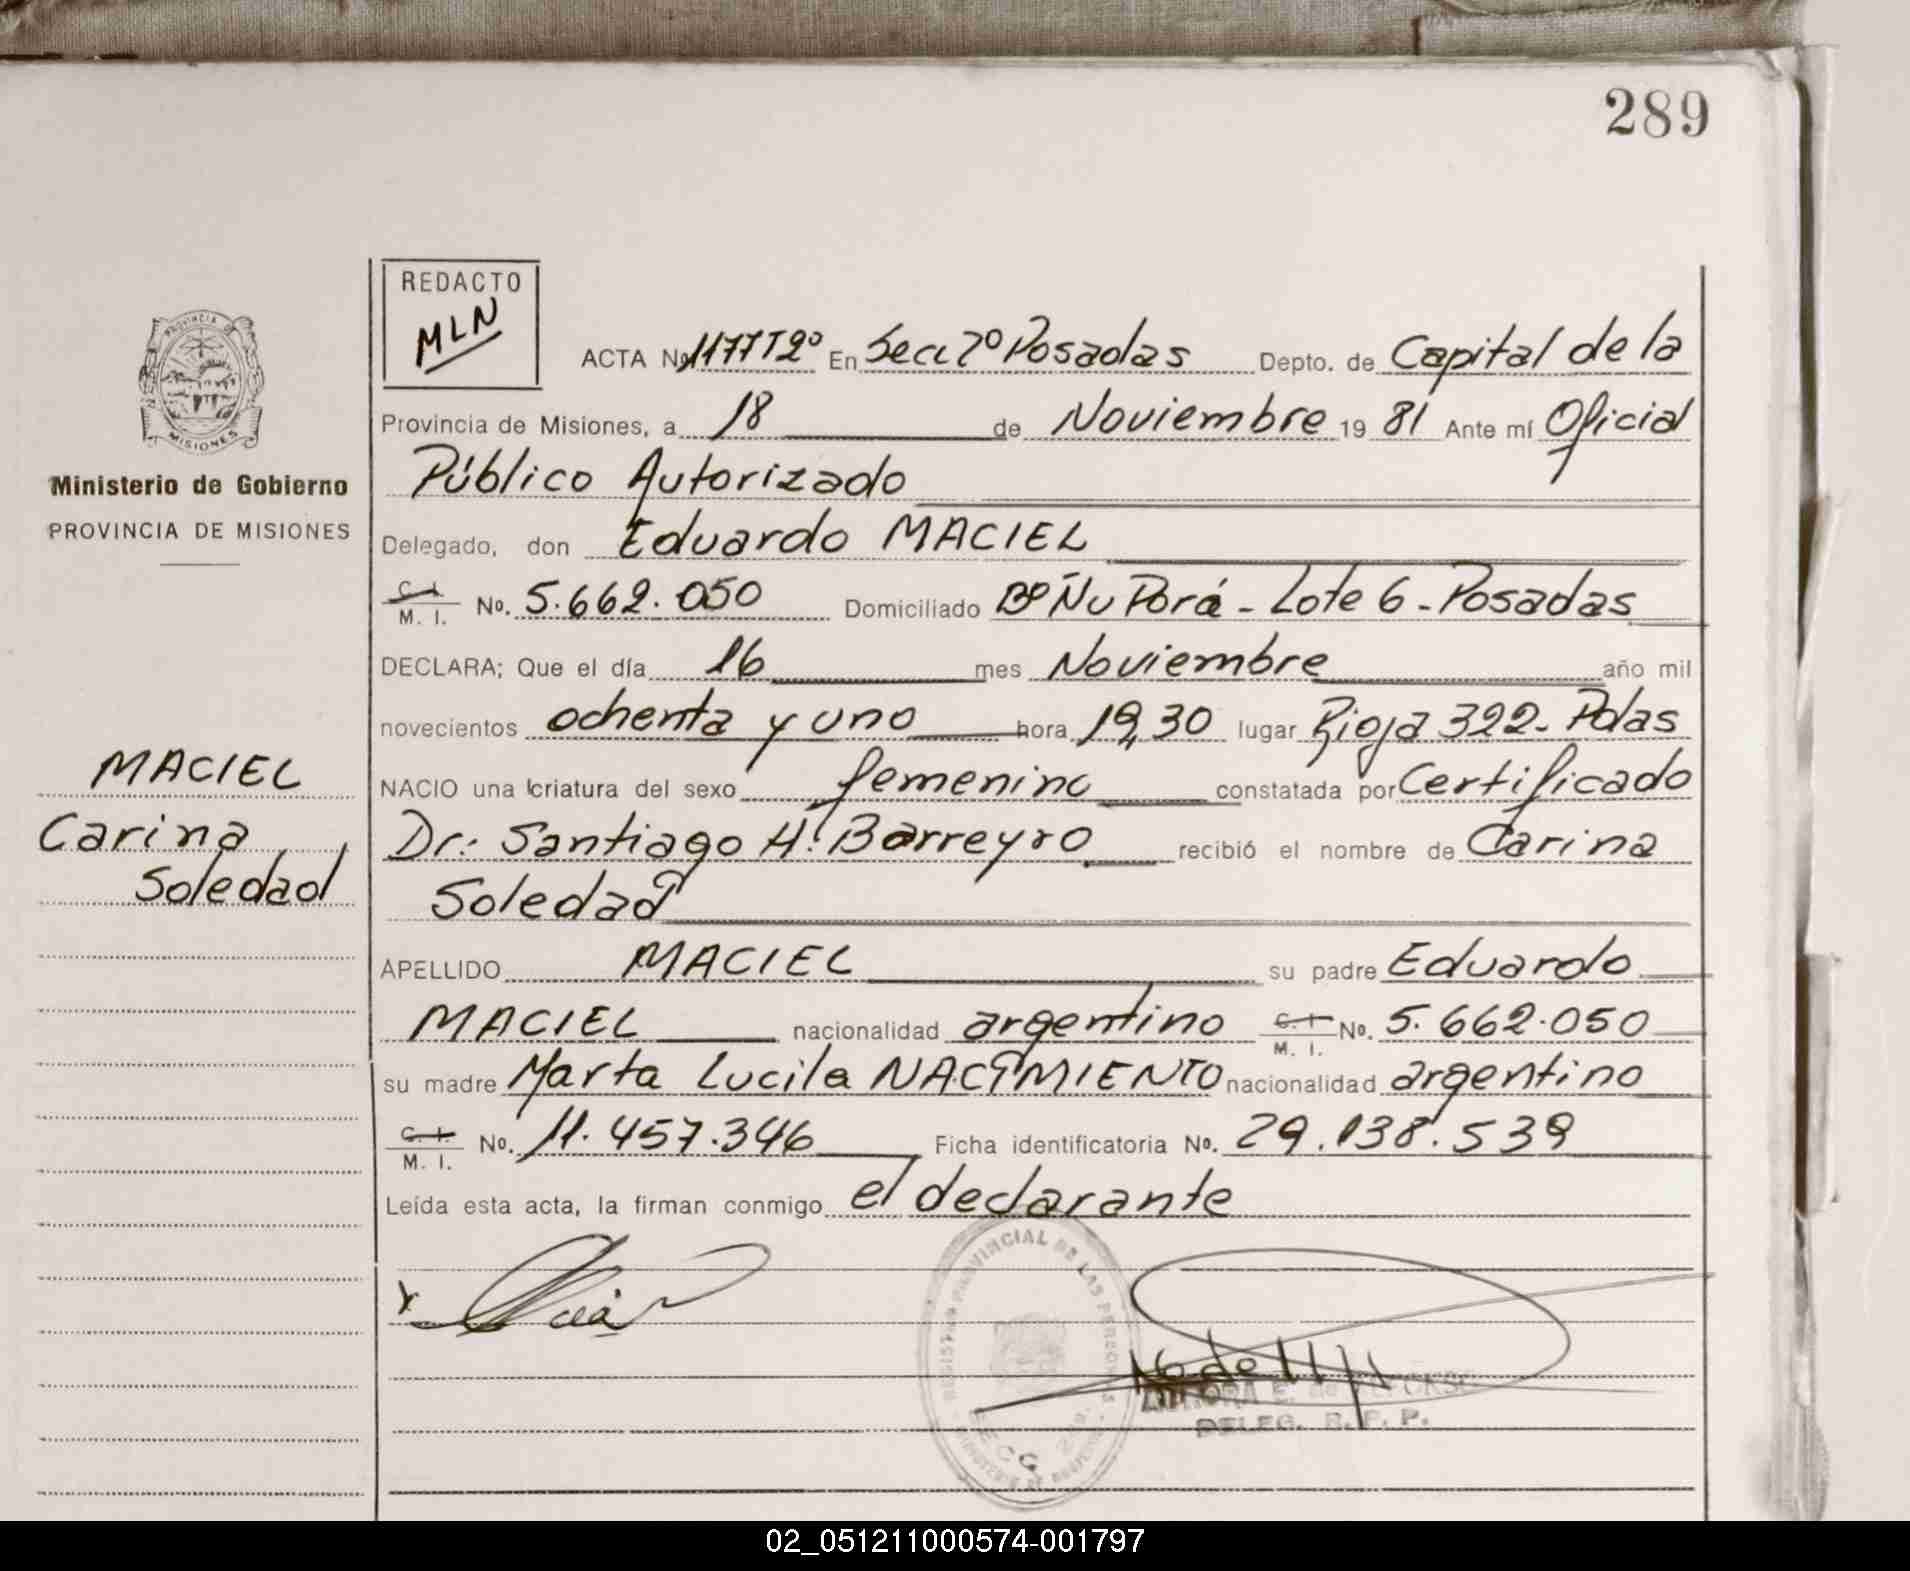 289
REDACTO
MLN
ACTA No 1177 T 2º En Secc 7º Posadas Depto. de Capital de la
PROVINCIA DE MISIONES
Provincia de Misiones, a 18 de Noviembre 19 81 Ante mí Oficial
Ministerio de Gobierno
Público Autorizado
PROVINCIA DE MISIONES
Delegado, don Eduardo MACIEL
C. I.
M. I. No. 5.662.050 Domiciliado Bº Ñu Porá - Lote 6 - Posadas
DECLARA; Que el día 16 mes Noviembre año mil
novecientos ochenta y uno hora 19,30 lugar Rioja 322 - Pdas
MACIEL
NACIO una criatura del sexo femenino constatada por Certificado
Carina
Dr.: Santiago H. Barreyro recibió el nombre de Carina
Soledad
Soledad
APELLIDO MACIEL su padre Eduardo
MACIEL nacionalidad argentino C. I. M. I. No. 5.662.050
su madre Marta Lucila NACIMIENTO nacionalidad argentino
C. I.
M. I. No. 11.457.346 Ficha identificatoria No. 29.138.539
Leída esta acta, la firman conmigo el declarante
REGISTRO PROVINCIAL DE LAS PERSONAS
DELEG. R. P. P.
02_051211000574-001797